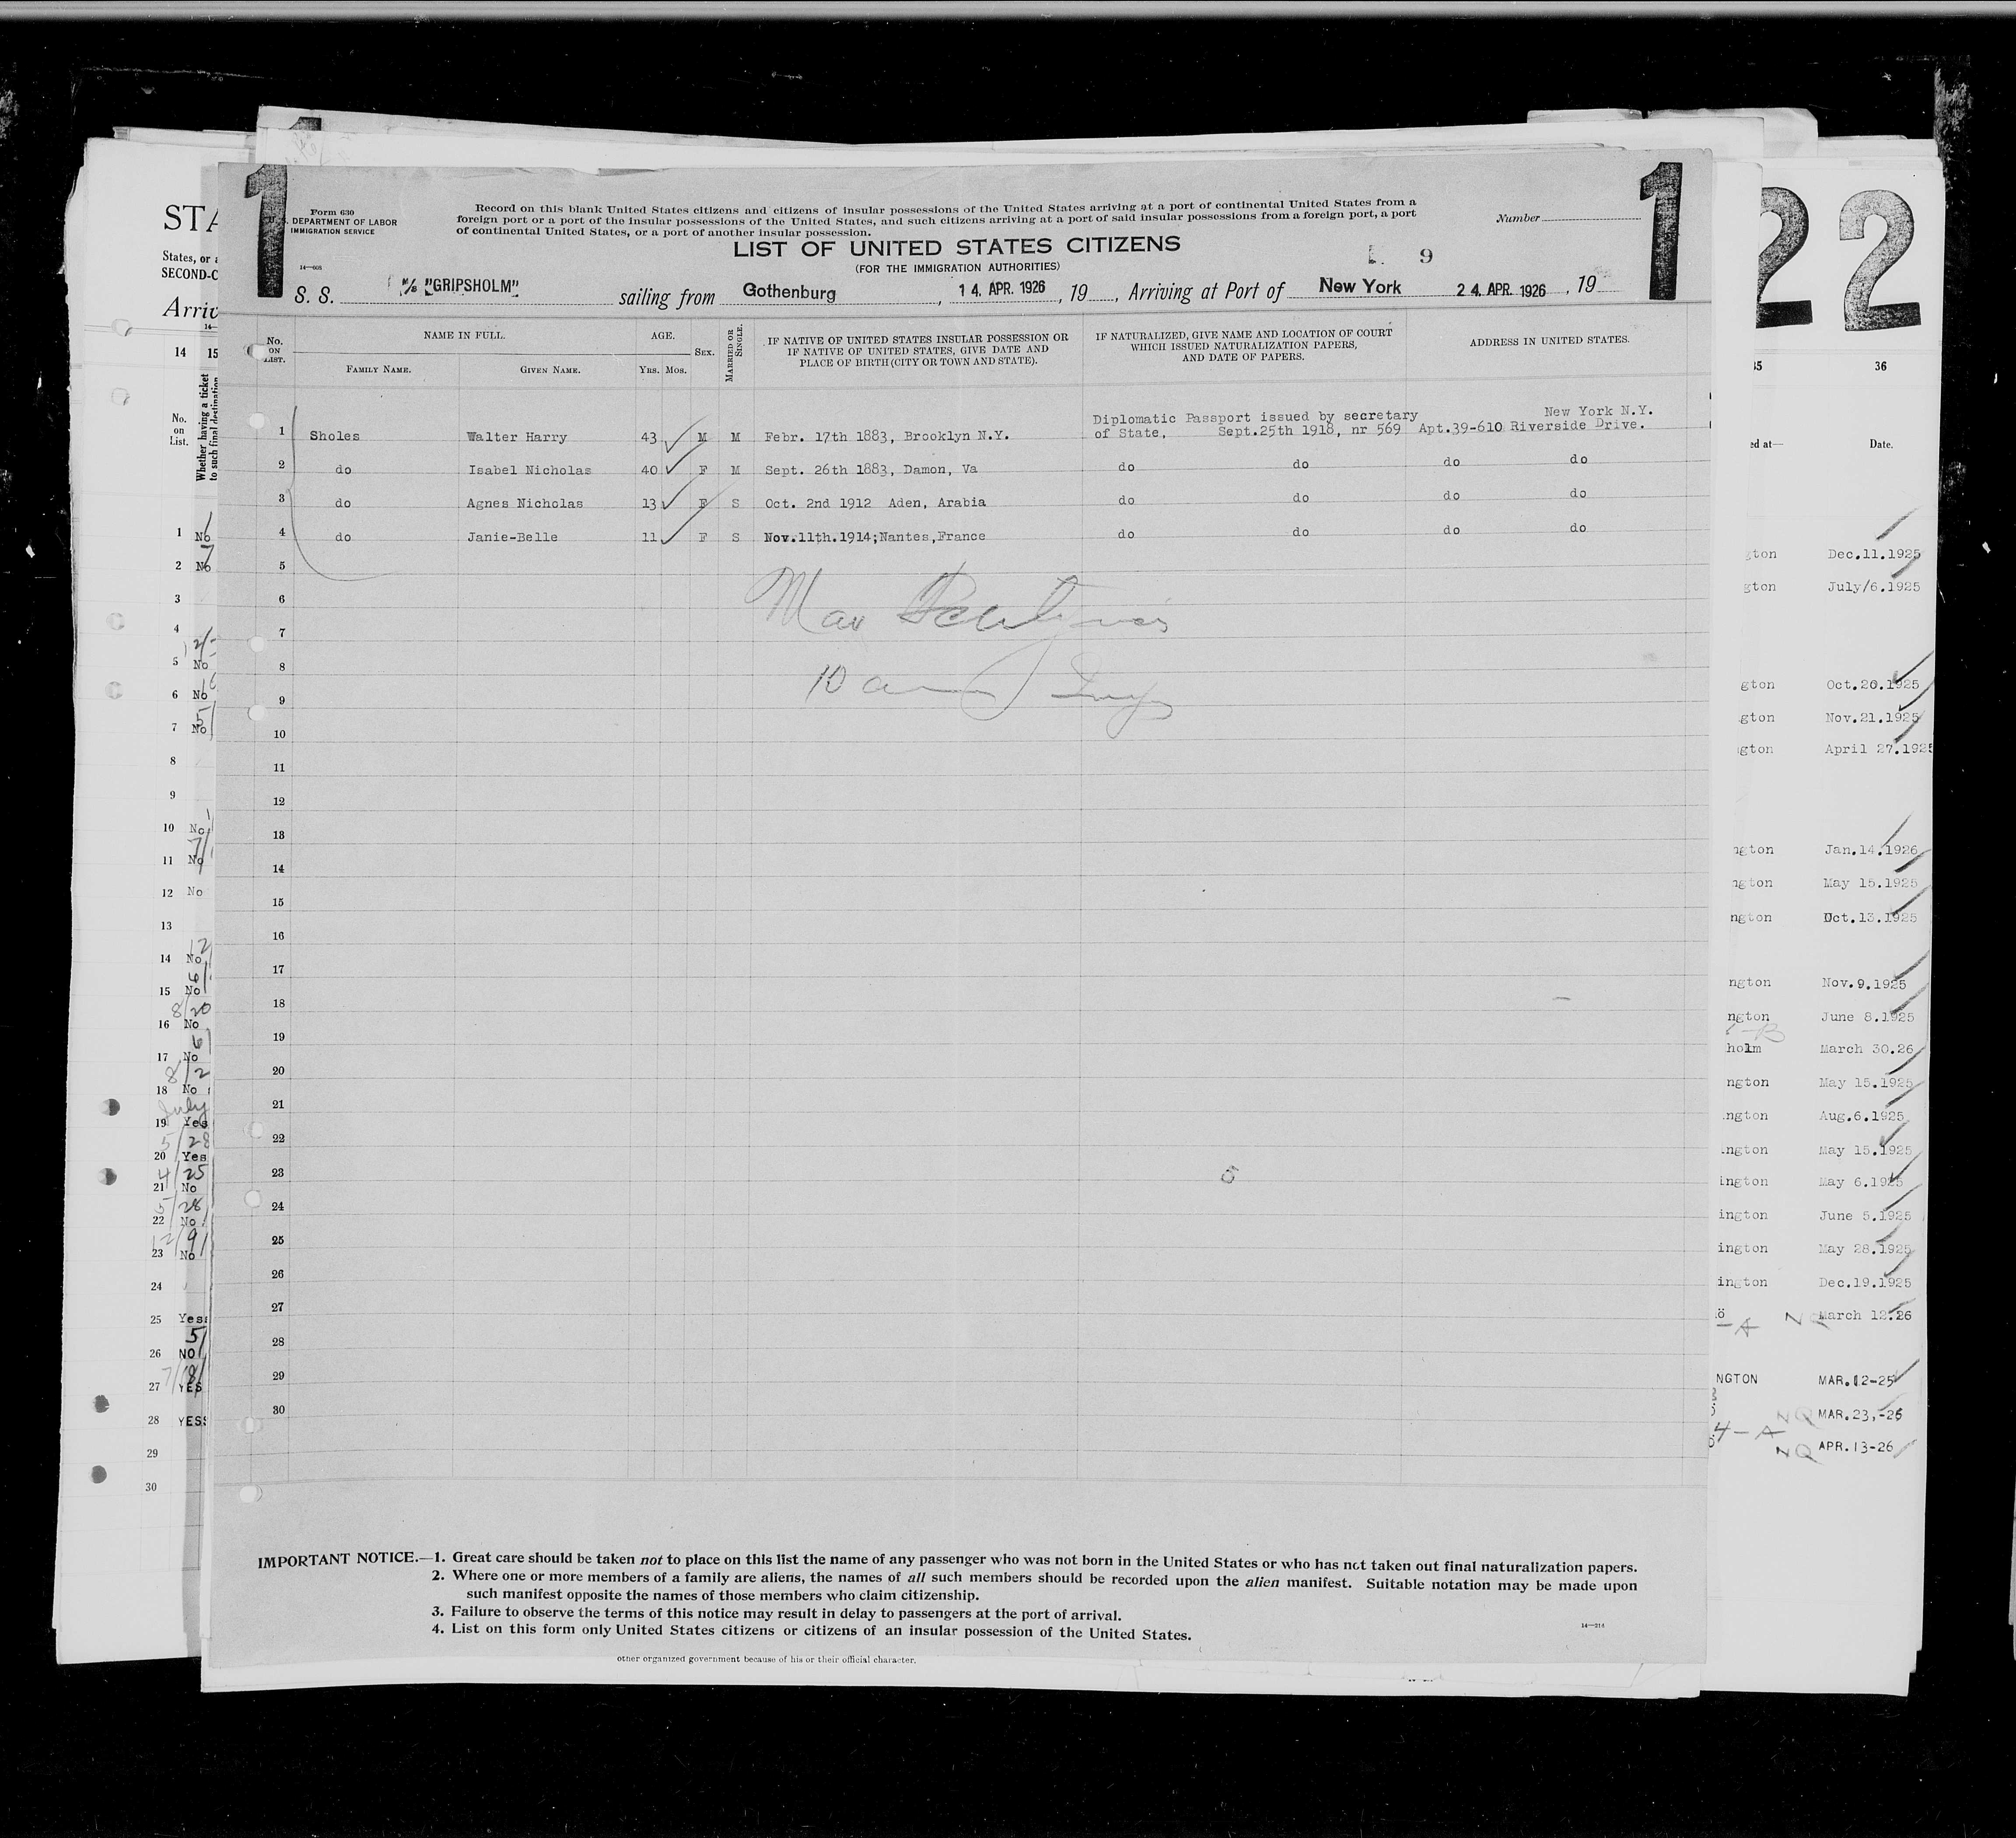 1
1
22
Form 630
U. S. DEPARTMENT OF LABOR
IMMIGRATION SERVICE
Record on this blank United States citizens and citizens of insular possessions of the United States arriving at a port of continental United States from a
foreign port or a port of the insular possessions of the United States, and such citizens arriving at a port of said insular possessions from a foreign port, a port
of continental United States, or a port of another insular possession.
Number
LIST OF UNITED STATES CITIZENS
(FOR THE IMMIGRATION AUTHORITIES)
9
S. S. M/S "GRIPSHOLM" sailing from Gothenburg, 14. APR. 1926, 19, Arriving at Port of New York 24. APR. 1926, 19
No. ON LIST.
NAME IN FULL.
FAMILY NAME.
GIVEN NAME.
AGE.
YRS. MOS.
SEX.
MARRIED OR SINGLE.
IF NATIVE OF UNITED STATES INSULAR POSSESSION OR
IF NATIVE OF UNITED STATES, GIVE DATE AND
PLACE OF BIRTH (CITY OR TOWN AND STATE).
IF NATURALIZED, GIVE NAME AND LOCATION OF COURT
WHICH ISSUED NATURALIZATION PAPERS,
AND DATE OF PAPERS.
ADDRESS IN UNITED STATES.
Diplomatic Passport issued by secretary New York N.Y.
1 Sholes Walter Harry 43 M M Febr. 17th 1883, Brooklyn N.Y. of State, Sept.25th 1918, nr 569 Apt.39-610 Riverside Drive.
2 do Isabel Nicholas 40 F M Sept. 26th 1883, Damon, Va do do do do
3 do Agnes Nicholas 13 F S Oct. 2nd 1912 Aden, Arabia do do do do
4 do Janie-Belle 11 F S Nov.11th.1914;Nantes,France do do do do
5
6
7
8
9
10
11
12
13
14
15
16
17
18
19
20
21
22
23
24
25
26
27
28
29
30
10 am
5
IMPORTANT NOTICE.—1. Great care should be taken not to place on this list the name of any passenger who was not born in the United States or who has not taken out final naturalization papers.
2. Where one or more members of a family are aliens, the names of all such members should be recorded upon the alien manifest. Suitable notation may be made upon
such manifest opposite the names of those members who claim citizenship.
3. Failure to observe the terms of this notice may result in delay to passengers at the port of arrival.
4. List on this form only United States citizens or citizens of an insular possession of the United States.
14—214
other organized government because of his or their official character.
STA
States, or a
SECOND-C
Arriv
14 15
No. on List.
Whether having a ticket to such final destination
1 No
2 No
3
4
5 No
6 No
7 No
8
9
10 No
11 No
12 No
13
14 No
15 No
16 No
17 No
18 No
19 Yes
20 Yes
21 No
22 No
23 No
24
25 Yes
26 NO
27 YES
28 YES
29
30
35 36
ed at— Date.
gton Dec.11.1925
gton July/6.1925
gton Oct.20.1925
gton Nov.21.1925
gton April 27.1925
ngton Jan.14.1926
ngton May 15.1925
ngton Oct.13.1925
ngton Nov.9.1925
ngton June 8.1925
holm March 30.26
ngton May 15.1925
ngton Aug.6.1925
ngton May 15.1925
ington May 6.1925
ington June 5.1925
ington May 28.1925
ington Dec.19.1925
ö March 12.26
NGTON MAR.12-25
4-A NQ MAR.23,-26
NQ APR.13-26